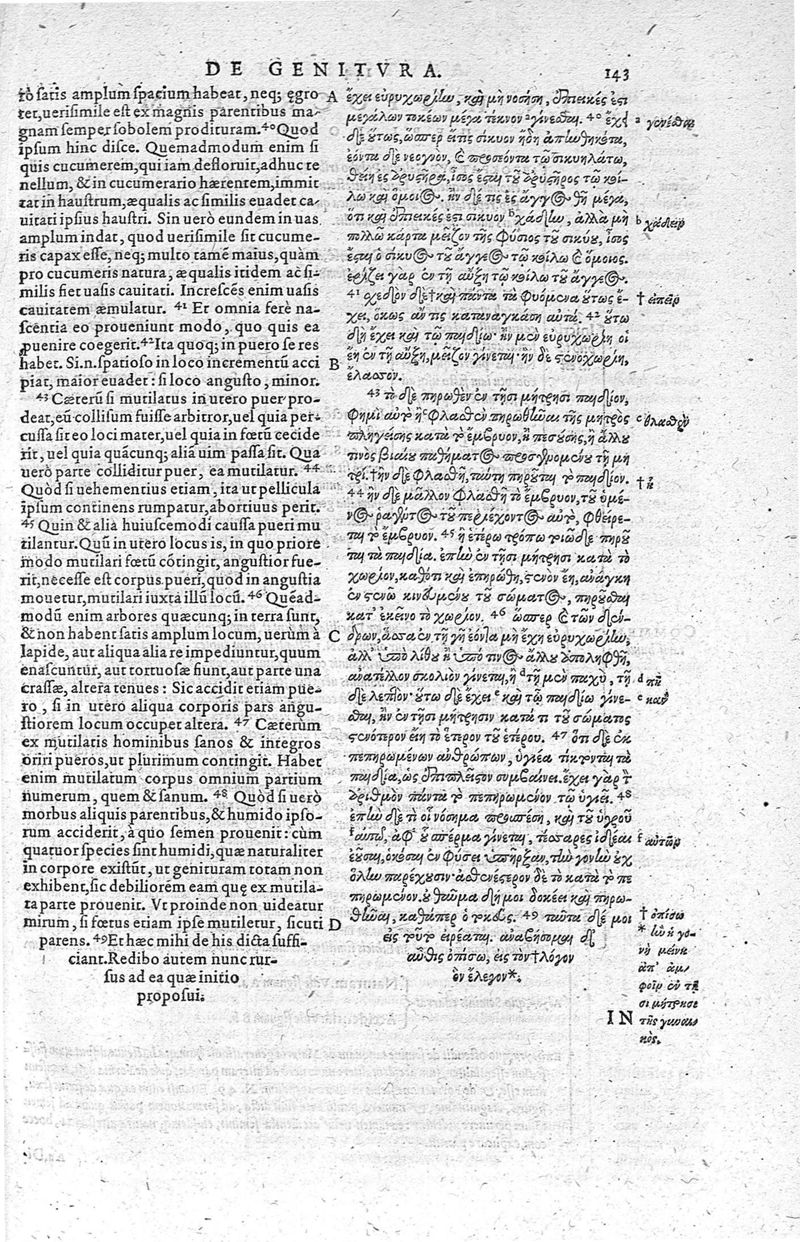 DE GENITVRA.
143
tò satis amplum spatium habeat, neq; ęgro
ter, uerisimile est ex magnis parentibus ma-
gnam semper sobolem prodituram. 40 Quod
ipsum hinc disce. Quemadmodum enim si
quis cucumerem, qui iam defloruit, adhuc te
nellum, & in cucumerario hærentem, immit
tat in haustrum, æqualis ac similis euadet ca-
uitati ipsius haustri. Sin uerò eundem in uas
amplum indat, quod uerisimile sit cucume-
ris capax esse, neq; multo tamē maius, quàm
pro cucumeris natura, æqualis itidem ac si-
milis fiet uasis cauitati. Increscēs enim uasis
cauitatem æmulatur. 41 Et omnia ferè na-
scentia eo proueniunt modo, quo quis ea
puenire coegerit. 42 Ita quoq; in puero se res
habet. Si.n. spatioso in loco incrementū acci
piat, maior euadet: si loco angusto, minor.
43 Cæterū si mutilatus in utero puer pro-
deat, eū collisum fuisse arbitror, uel quia per-
cussa sit eo loci mater, uel quia in fœtū cecide
rit, uel quia quācunq; aliā uim passa sit. Qua
uerò parte colliditur puer, ea mutilatur. 44
Quòd si uehementius etiam, ita ut pellicula
ipsum continens rumpatur, abortiuus perit.
45 Quin & alia huiuscemodi caussa pueri mu
tilantur. Quū in utero locus is, in quo priore
modo mutilari fœtū cōtingit, angustior fue-
rit, necesse est corpus pueri, quod in angustia
mouetur, mutilari iuxta illū locū. 46 Quēad-
modū enim arbores quæcunq; in terra sunt,
& non habent satis amplum locum, uerùm à
lapide, aut aliqua alia re impediuntur, quum
enascuntur, aut tortuosæ fiunt, aut parte una
crassæ, altera tenues: Sic accidit etiam pue-
ro, si in utero aliqua corporis pars angu-
stiorem locum occupet altera. 47 Cæterum
ex mutilatis hominibus sanos & integros
oriri pueros, ut plurimum contingit. Habet
enim mutilatum corpus omnium partium
numerum, quem & sanum. 48 Quòd si uerò
morbus aliquis parentibus, & humido ipso-
rum acciderit, à quo semen prouenit: cùm
quatuor species sint humidi, quæ naturaliter
in corpore existūt, ut genituram totam non
exhibent, sic debiliorem eam quę ex mutila-
ta parte prouenit. Vt proinde non uideatur
mirum, si fœtus etiam ipse mutiletur, sicuti
parens. 49 Et hæc mihi de his dicta suffi-
ciant. Redibo autem nunc rur-
sus ad ea quæ initio
proposui.
A
B
C
D
ἔχει εὐρυχωρίην, καὶ μὴ νοσήση, ἐπιεικές ἐστι
μεγάλων τοκέων μέγα τέκνον a γίνεσθαι. 40 ἔχει
δὲ οὕτως, ὥσπερ εἴ τις σίκυον ἤδη ἀπηνθηκότα,
ἐόντα δὲ νεογνὸν, καὶ προσεόντα τῷ σικυηλάτῳ,
θείη ἐς ἀρυστῆρα, ἶσος ἔσται τοῦ ἀρυστῆρος τῷ κοί-
λῳ καὶ ὅμοιος. ἢν δέ τις ἐς ἄγγος θῇ μέγα,
ὅτι καὶ ἐπιεικές ἐστι σίκυον b χάδην, ἀλλὰ μὴ
πολλῷ κάρτα μεῖζον τῆς φύσιος τοῦ σικύου, ἶσος
ἔσται ὁ σίκυος τοῦ ἄγγεος τῷ κοίλῳ καὶ ὅμοιος.
ἐρίζει γὰρ ἐν τῇ αὔξῃ τῷ κοίλῳ τοῦ ἄγγεος.
41 σχεδὸν δὲ † καὶ πάντα τὰ φυόμενα οὕτως ἔ-
χει, ὅκως ἄν τις καταναγκάσῃ αὐτά. 42 οὕτω
δὴ ἔχει καὶ τῷ παιδίῳ· ἢν μὲν εὐρυχωρίη οἱ
ἔῃ ἐν τῇ αὔξῃ, μεῖζον γίνεται· ἢν δὲ στενοχωρίη,
ἔλασσον.
43 τὸ δὲ πηρωθὲν ἐν τῇσι μήτρησι παιδίον,
φημὶ αὐτὸ ἢ c φλασθὲν πηρωθῆναι τῆς μητρὸς
πληγείσης κατὰ τὸ ἔμβρυον, ἢ πεσούσης, ἢ ἄλλου
τινὸς βιαίου παθήματος προσγενομένου τῇ μη
τρί. † ἢν δὲ φλασθῇ, ταύτῃ πηροῦται τὸ παιδίον.
44 ἢν δὲ μᾶλλον φλασθῇ τὸ ἔμβρυον, τοῦ ὑμέ-
νος ῥαγέντος τοῦ περιέχοντος αὐτὸ, φθείρε-
ται τὸ ἔμβρυον. 45 ἢ ἑτέρῳ τρόπῳ τοιῷδε πηροῦ
ται τὰ παιδία. ἐπὴν ἐν τῇσι μήτρησι κατὰ τὸ
χωρίον, καθότι καὶ ἐπηρώθη, στενὸν ἔῃ, ἀνάγκη
ἐν στενῷ κινευμένου τοῦ σώματος, πηροῦσθαι
κατ' ἐκεῖνο τὸ χωρίον. 46 ὥσπερ καὶ τῶν δέν-
δρων, ἅσσα ἐν τῇ γῇ ἐόντα μὴ ἔχῃ εὐρυχωρίην,
ἀλλ' ὑπὸ λίθου ἢ ὑπό τινος ἄλλου ἀποληφθῇ,
ἀνατέλλον σκολιὸν γίνεται, ἢ d τῇ μὲν παχὺ, τῇ
δὲ λεπτόν· οὕτω δὲ ἔχει e καὶ τῷ παιδίῳ γίνε-
σθαι, ἢν ἐν τῇσι μήτρησιν κατά τι τοῦ σώματος
στενότερον εἴη τὸ ἕτερον τοῦ ἑτέρου. 47 ὅτι δὲ ἐκ
πεπηρωμένων ἀνθρώπων, ὑγιέα τίκτονται τὰ
παιδία, ὡς ἐπιπλεῖστον συμβαίνει. ἔχει γὰρ τὸν
ἀριθμὸν πάντα τὸ πεπηρωμένον τῷ ὑγιεῖ. 48
ἐπὴν δέ τι οἱ νόσημα προσπέσῃ, καὶ τοῦ ὑγροῦ
f αὐτῷ, ἀφ' οὗ σπέρμα γίνεται, τέσσαρες ἰδέαι
ἐοῦσαι, ὁκόσαι ἐν φύσει ὑπῆρξαν, τὴν γονὴν οὐχ
ὅλην παρέχουσιν· ἀσθενέστερον δὲ τὸ κατὰ τὸ πε
πηρωμένον. οὐ θαῦμα δή μοι δοκέει καὶ πηρω-
θῆναι, καθάπερ ὁ τοκεύς. 49 ταῦτα δέ μοι
ἐς τοῦτο εἰρέαται. ἀναβήσομαι δὲ
αὖθις ὀπίσω, εἰς τὸν † λόγον
ὃν ἔλεγον *.
a γονέεσθαι
b χαδέειν
† ἐπείρ
c βλασθὲν
† ᾗ
d πῆ
e κἂν
f αὐτῶν
† ὀπίσω
* ἢν ἡ γο-
νὴ μείνῃ
ἀπ' ἀμ-
φοῖν ἐν τῇ
σι μήτρησι
τῆς γυναι-
κός.
IN